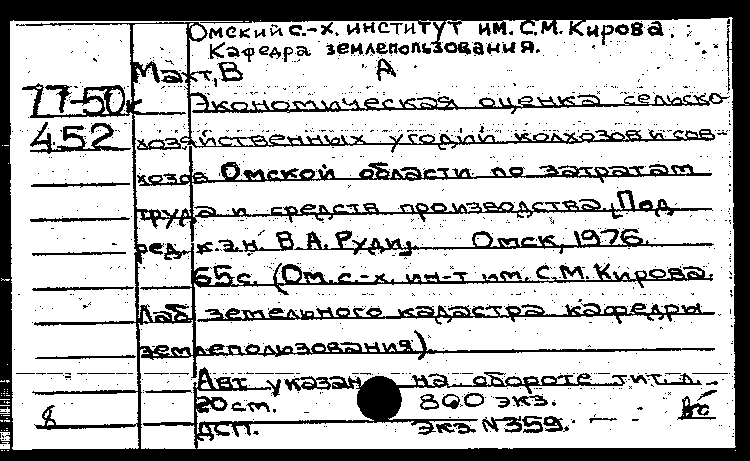 Омский с.-х. институт им. С.М. Кирова.
Кафедра землепользования.
Махт, В А
77-50к Экономическая оценка сельско-
452 хозяйственных угодий колхозов и сов-
хозов Омской области по затратам
труда и средств производства. [Под
ред. к.э.н. В.А. Руди]. Омск, 1976.
65с. (Ом. с.-х. ин-т им. С.М. Кирова.
Лаб земельного кадастра кафедры
землепользования).
Авт указан на обороте тит. л.
20 см. 800 экз.
8 ДСП. Экз. N 359.